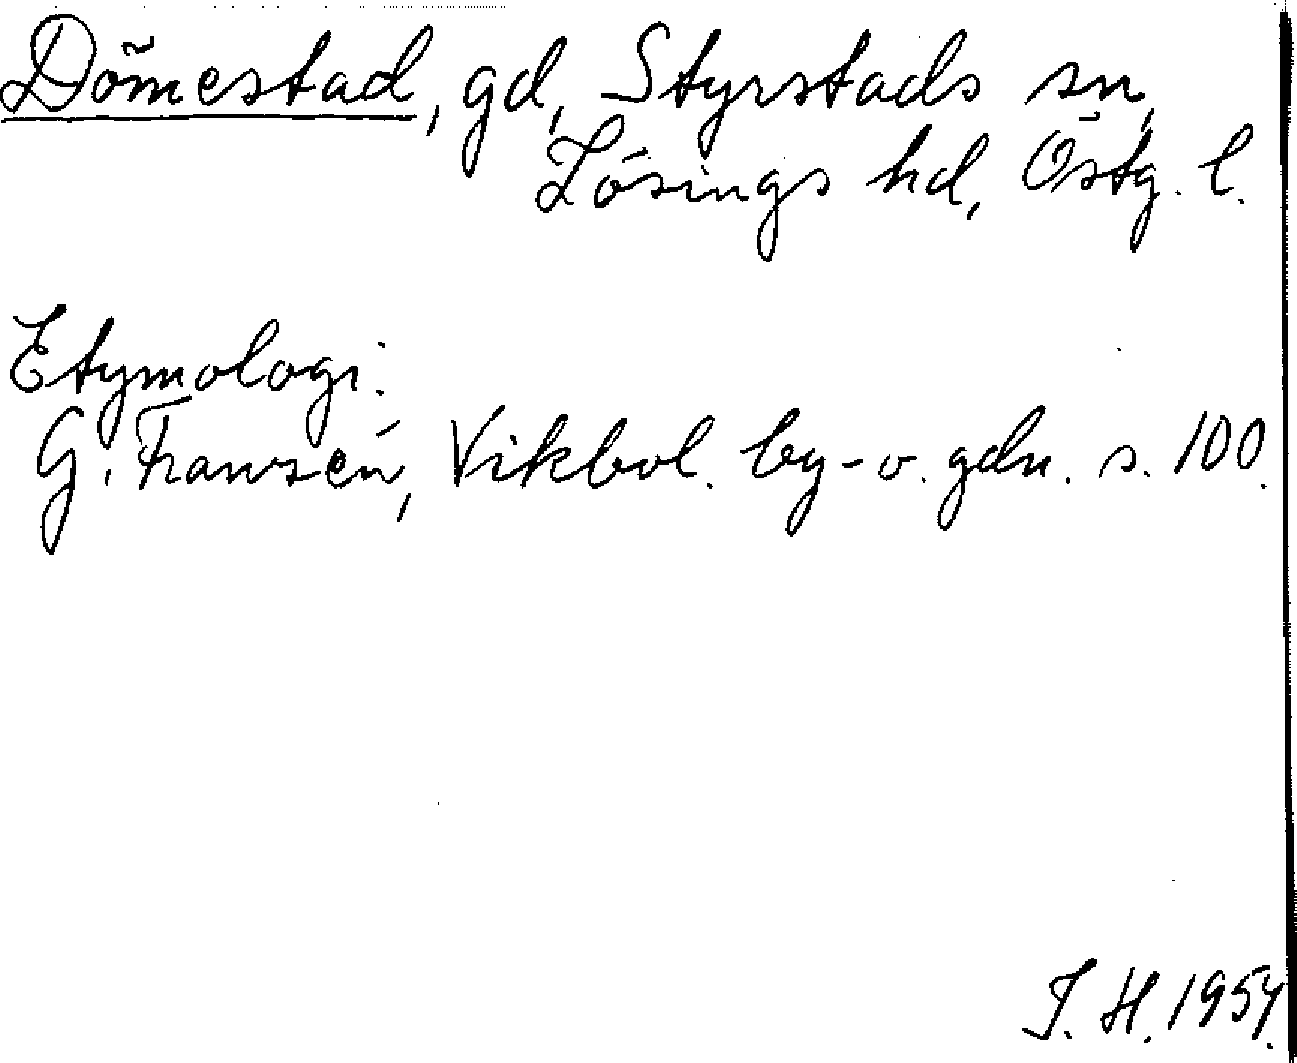 Dömestad, gd, Styrstads sn,
Lösings hd, Östg. l.
Etymologi:
G. Franzén, Vikbol. by- o. gdn. s. 100.
J. H. 1954.